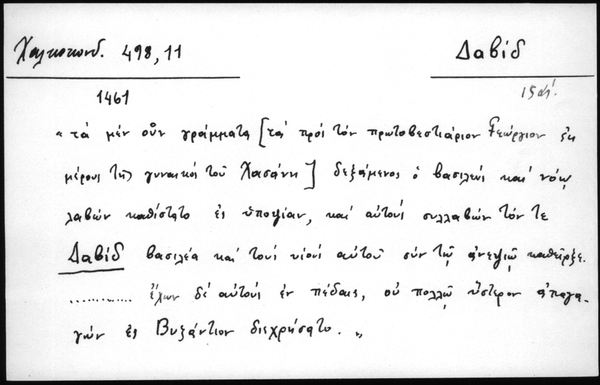 Χαλκοκονδ. 498,11
Δαβίδ
1461
« τά μέν οὖν γράμματα [τά πρός τόν πρωτοβεστιάριον Γεώργιον ἐκ
μέρους τῆς γυναικός τοῦ Χασάνη] δεξάμενος ὁ βασιλεύς καί νόῳ
λαβών καθίστατο ἐς ὑποψίαν, καί αὐτούς συλλαβών τόν τε
Δαβίδ βασιλέα καί τούς υἱούς αὐτοῦ σύν τῷ ἀνεψιῷ καθεῖρξε.
............ ἔχων δέ αὐτούς ἐν πέδαις, οὐ πολλῷ ὕστερον ἀπαγα-
γών ἐς Βυζάντιον διεχρήσατο. »